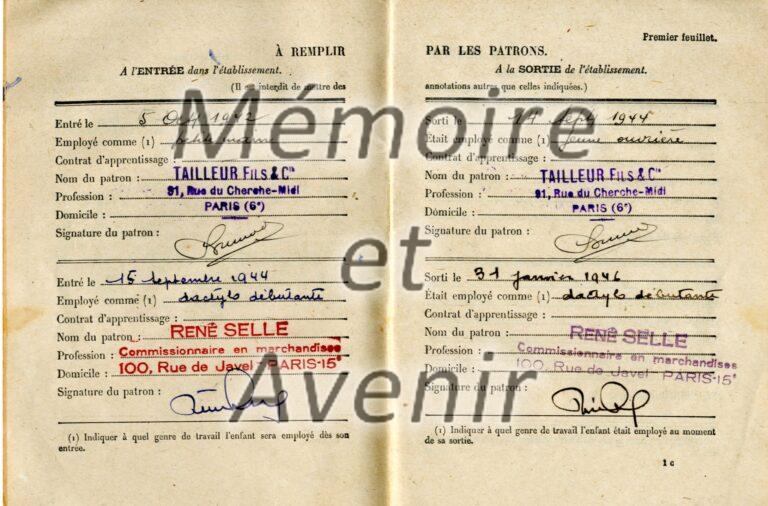 Premier feuillet.
À REMPLIR
A l'ENTRÉE dans l'établissement.
(Il est interdit de mettre des
Entré le 5 Oct 1942
Employé comme (1) petite main
Contrat d'apprentissage :
Nom du patron : TAILLEUR FILS & Cie
Profession : 91, Rue du Cherche-Midi
Domicile : PARIS (6e)
Signature du patron :
Entré le 15 septembre 1944
Employé comme (1) dactylo débutante
Contrat d'apprentissage :
Nom du patron : RENÉ SELLE
Profession : Commissionnaire en marchandises
Domicile : 100, Rue de Javel - PARIS-15e
Signature du patron :
(1) Indiquer à quel genre de travail l'enfant sera employé dès son
entrée.
PAR LES PATRONS.
A la SORTIE de l'établissement.
annotations autres que celles indiquées.)
Sorti le 14 Sept 1944
Était employé comme (1) jeune ouvrière
Contrat d'apprentissage :
Nom du patron : TAILLEUR FILS & Cie
Profession : 91, Rue du Cherche-Midi
Domicile : PARIS (6e)
Signature du patron :
Sorti le 31 janvier 1946
Était employé comme (1) dactylo débutante
Contrat d'apprentissage :
Nom du patron : RENÉ SELLE
Profession : Commissionnaire en marchandises
Domicile : 100, Rue de Javel - PARIS-15e
Signature du patron :
(1) Indiquer à quel genre de travail l'enfant était employé au moment
de sa sortie.
1 c
Mémoire
et
Avenir